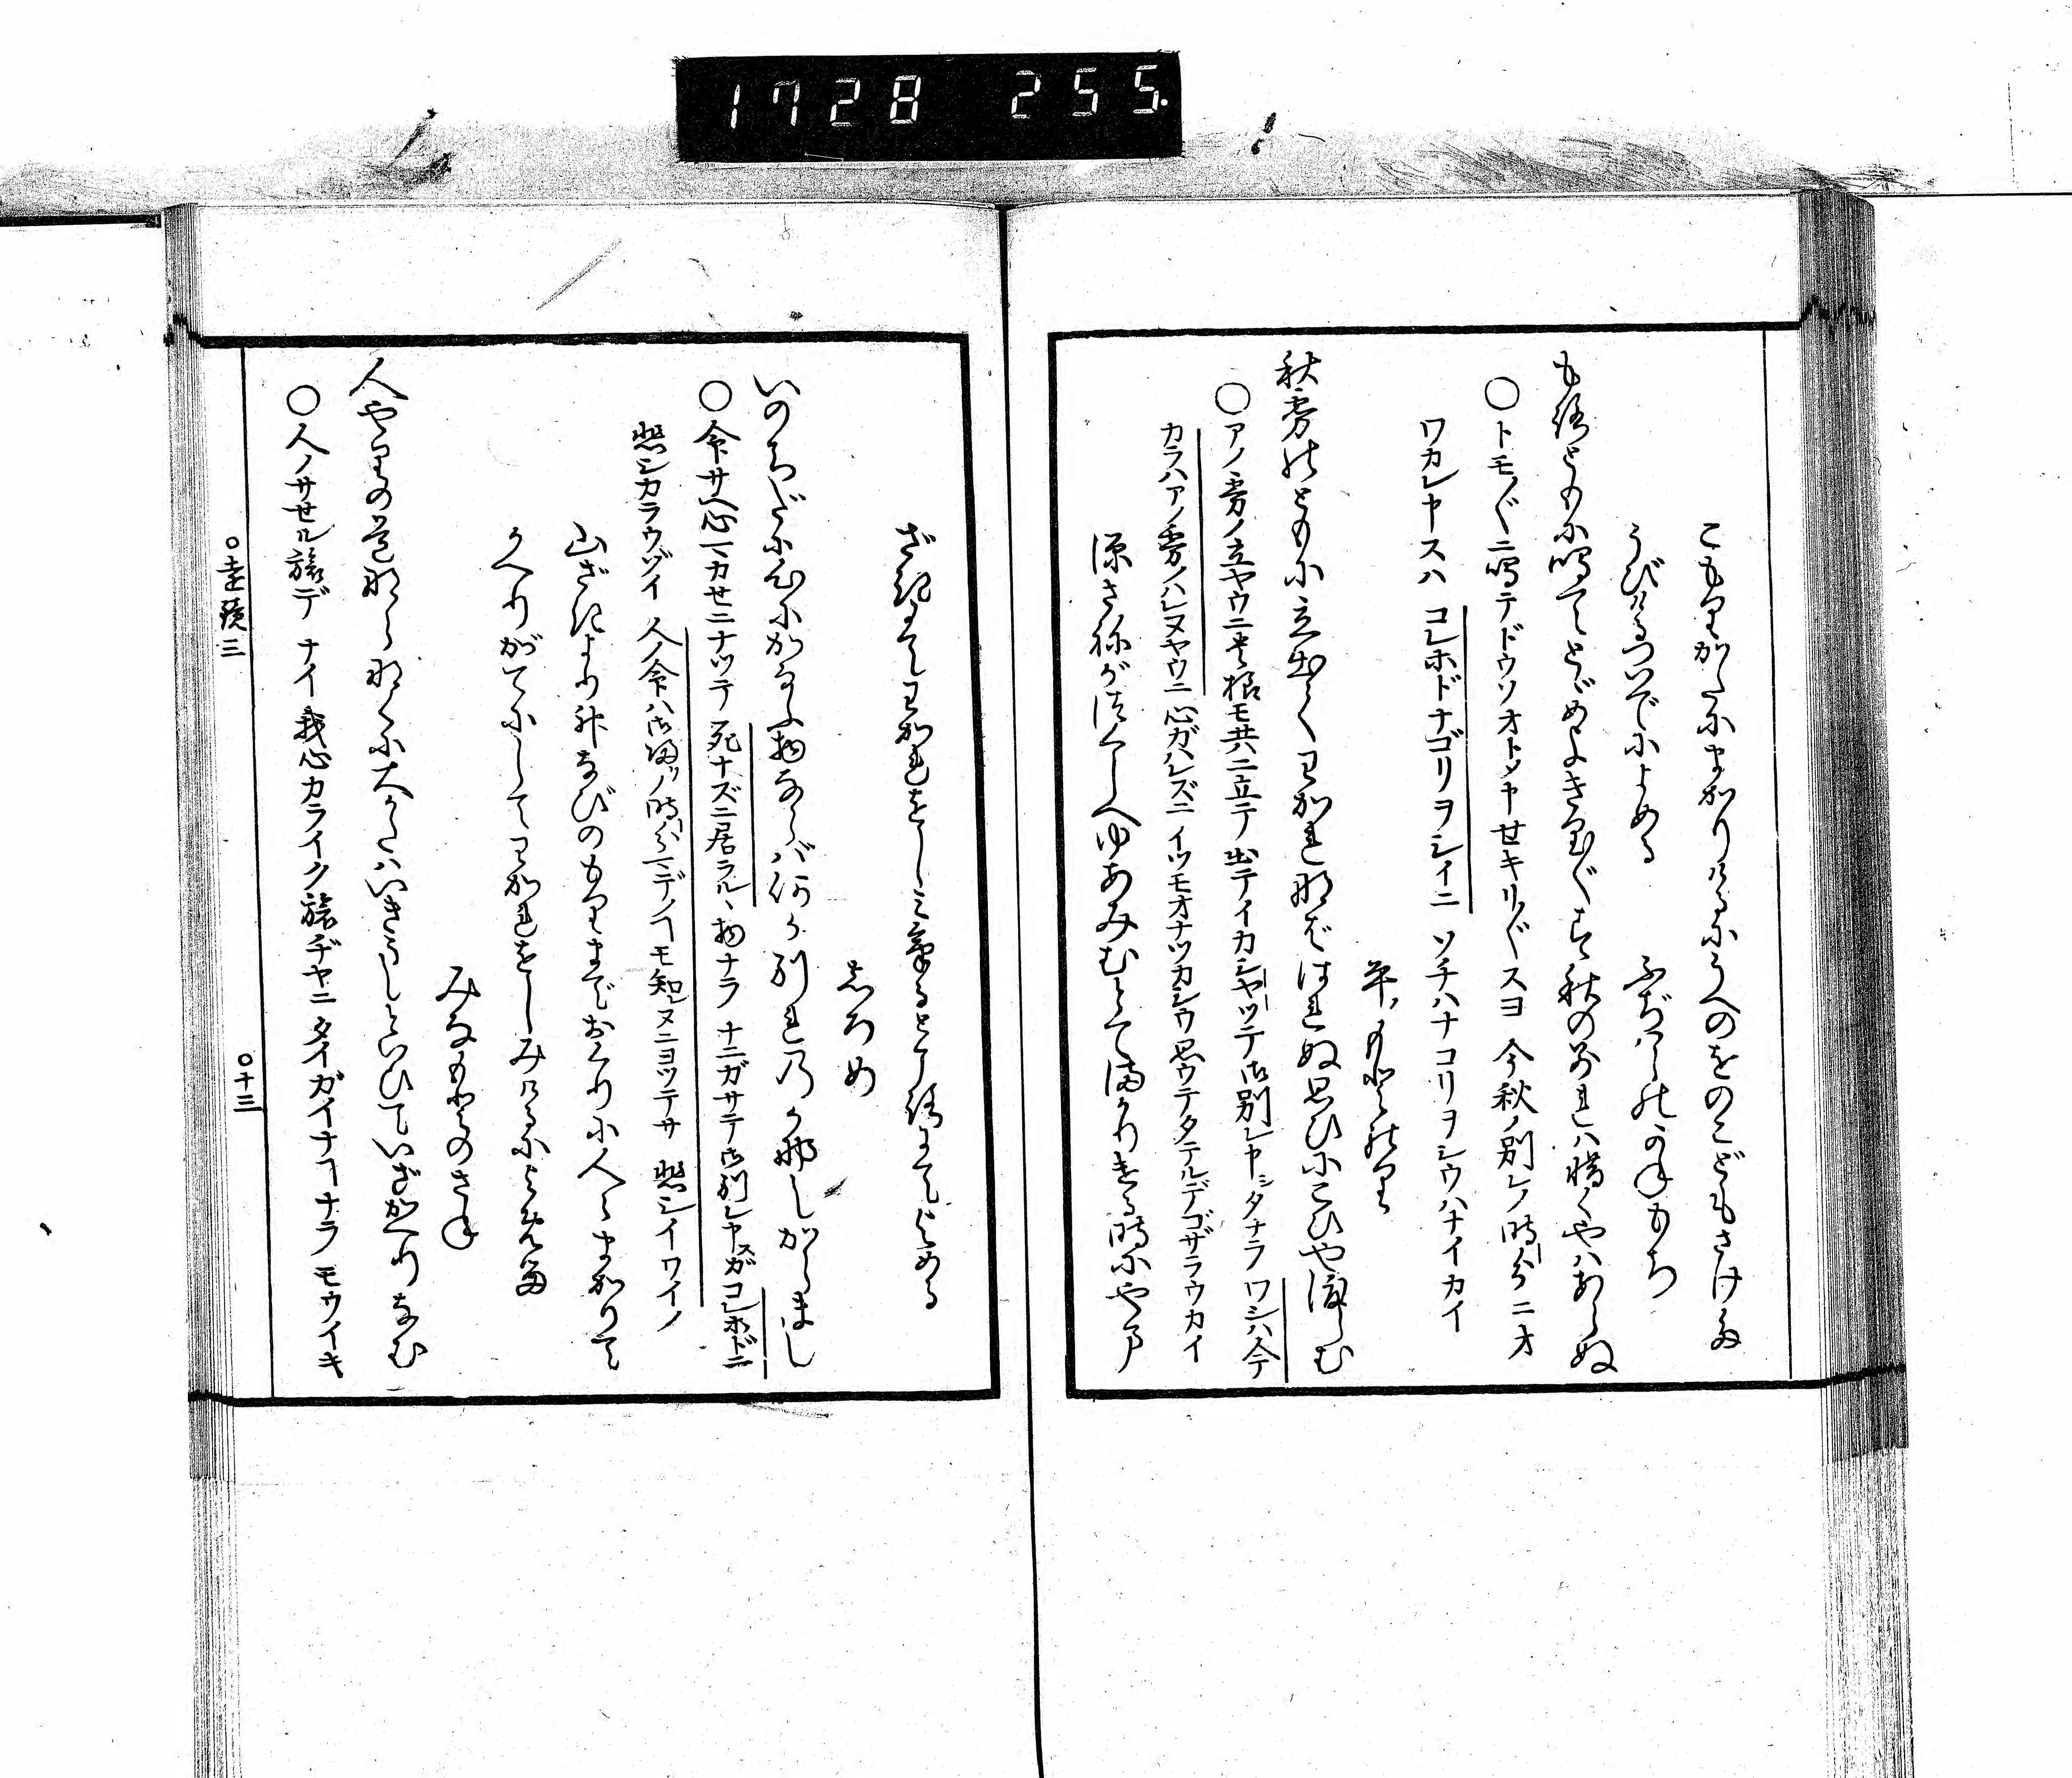 1728 255.
こもりがたにまかりけるにうへのをのこどもさけた
うびけるついでによめる　ふぢはらのかねもち
もろともに鳴てとゞめよきり〴〵す秋の別れは惜くやはあらぬ
○トモ〴〵ニ鳴テドウソオトメヤセキリ〴〵スヨ　今秋ノ別レノ時分ニオ
ワカレヤスハ　コレホドナゴリヲシイニ　ソチハナコリヲシウハナイカイ
平もとのり
秋霧のともに立出てわかれなばはれぬ思ひにこひや渡らむ
○アノ霧ノ立ヤウニ其様モ共ニ立テ出テイカシヤツテ御別レヤシタナラ　ワシハ今
カラハアノ霧ノハレヌヤウニ心ガハレズニ　イツモオナツカシウ思ウテタテルデゴザラウカイ
源さねがつくしへゆあみむとてまかりける時にやま
ざきにてわかれをしみける所にてよめる
しろめ
いのちだに心にかなふ物ならば何か別れのかなしからまし
○命サヘ心マカセニナツテ　死ナズニ居ラルヽ物ナラ　ナニガサテ御別レヤスガコレホドニ
悲シカラウゾイ　人ノ命ハ御帰リノ時分マデノヿモ知レヌニヨツテサ　悲シイワイノ
山ざきより神なびのもりまでおくりに人〳〵まかりて
かへりがてにしてわかれをしみけるによめる
みなもとのさね
人やりの道ならなくに大かたはいきうしといひていざかへりなむ
○人ノサセル旅デ　ナイ　我心カライク旅ヂヤニ　タイガイナヿナラ　モウイキ
○遠鏡三　○十三